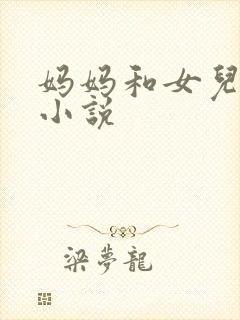 妈妈和女兒
小説
梁夢龍